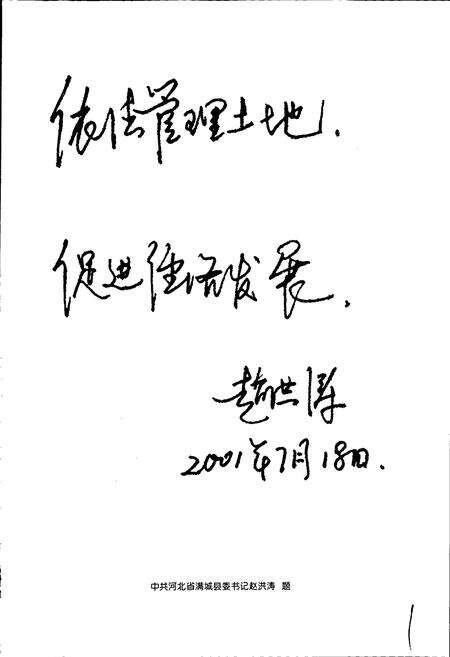 依法管理土地.
促进经济发展.
赵洪涛
2001年7月18日.
中共河北省满城县委书记赵洪涛 题